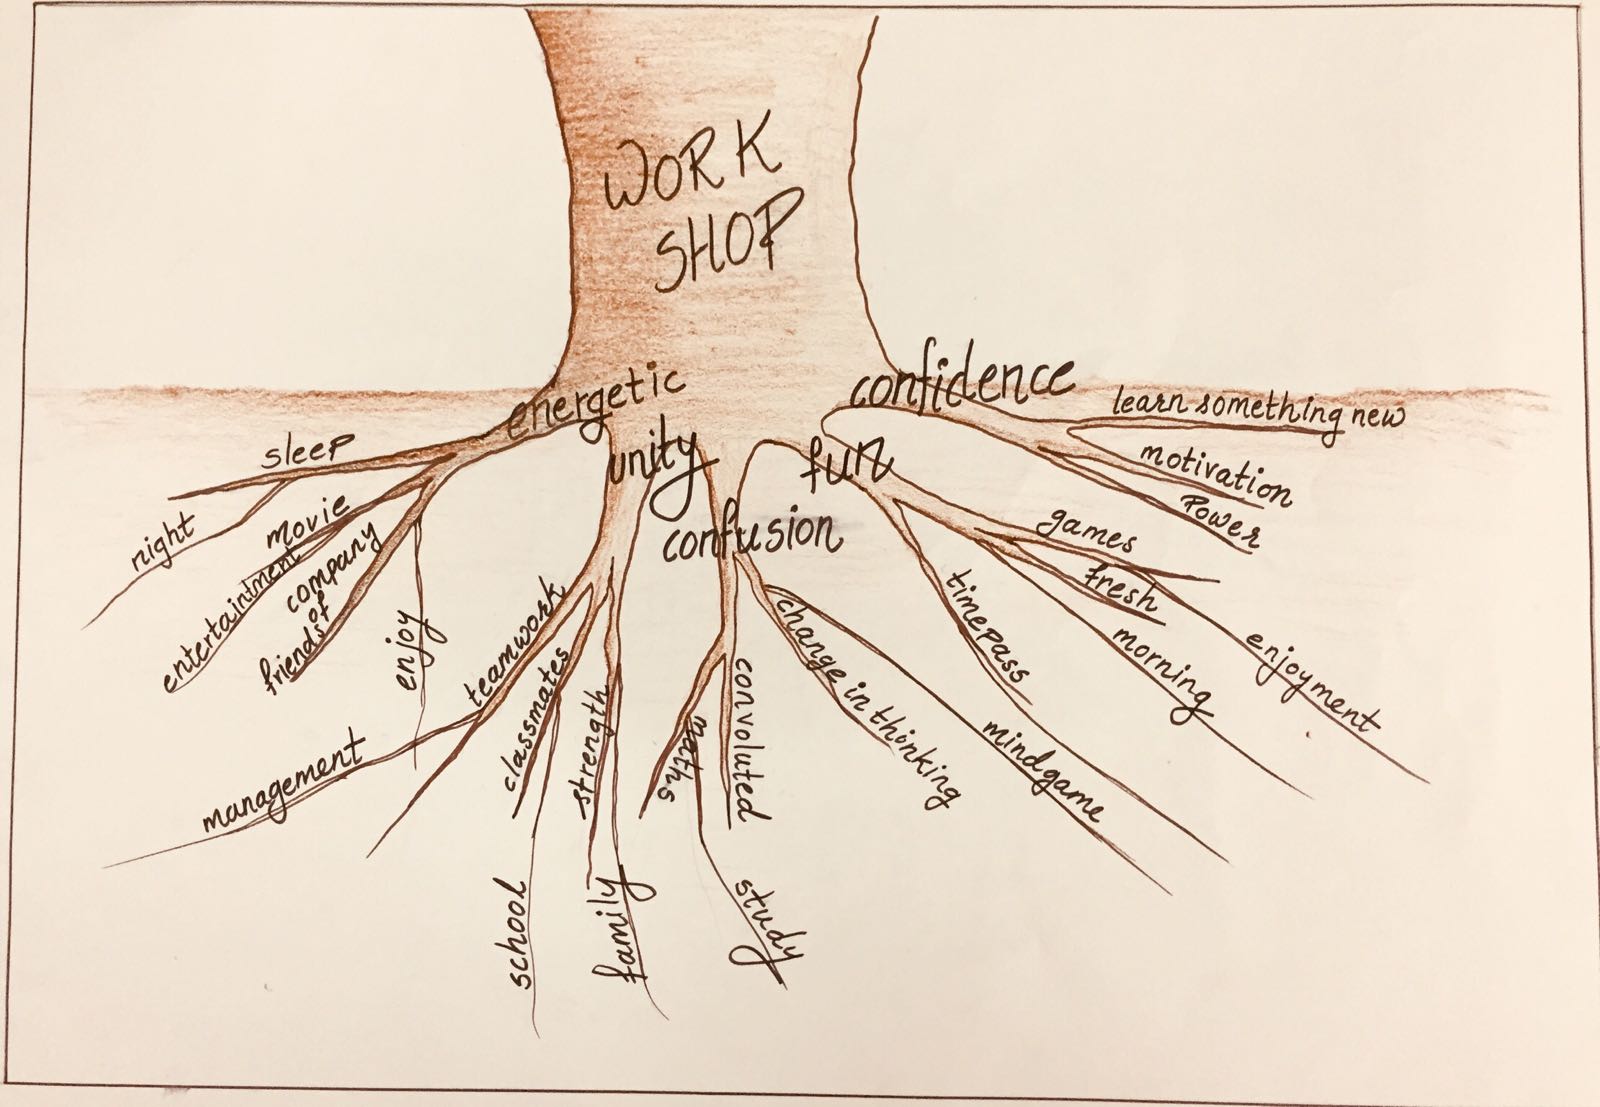 WORK
SHOP
energetic
unity
confusion
fun
confidence
sleep
night
movie
entertaintment
company
of
friends
enjoy
teamwork
management
classmates
school
strength
family
maths
study
convoluted
change in thinking
mindgame
timepass
games
enjoyment
fresh
morning
learn something new
motivation
Power